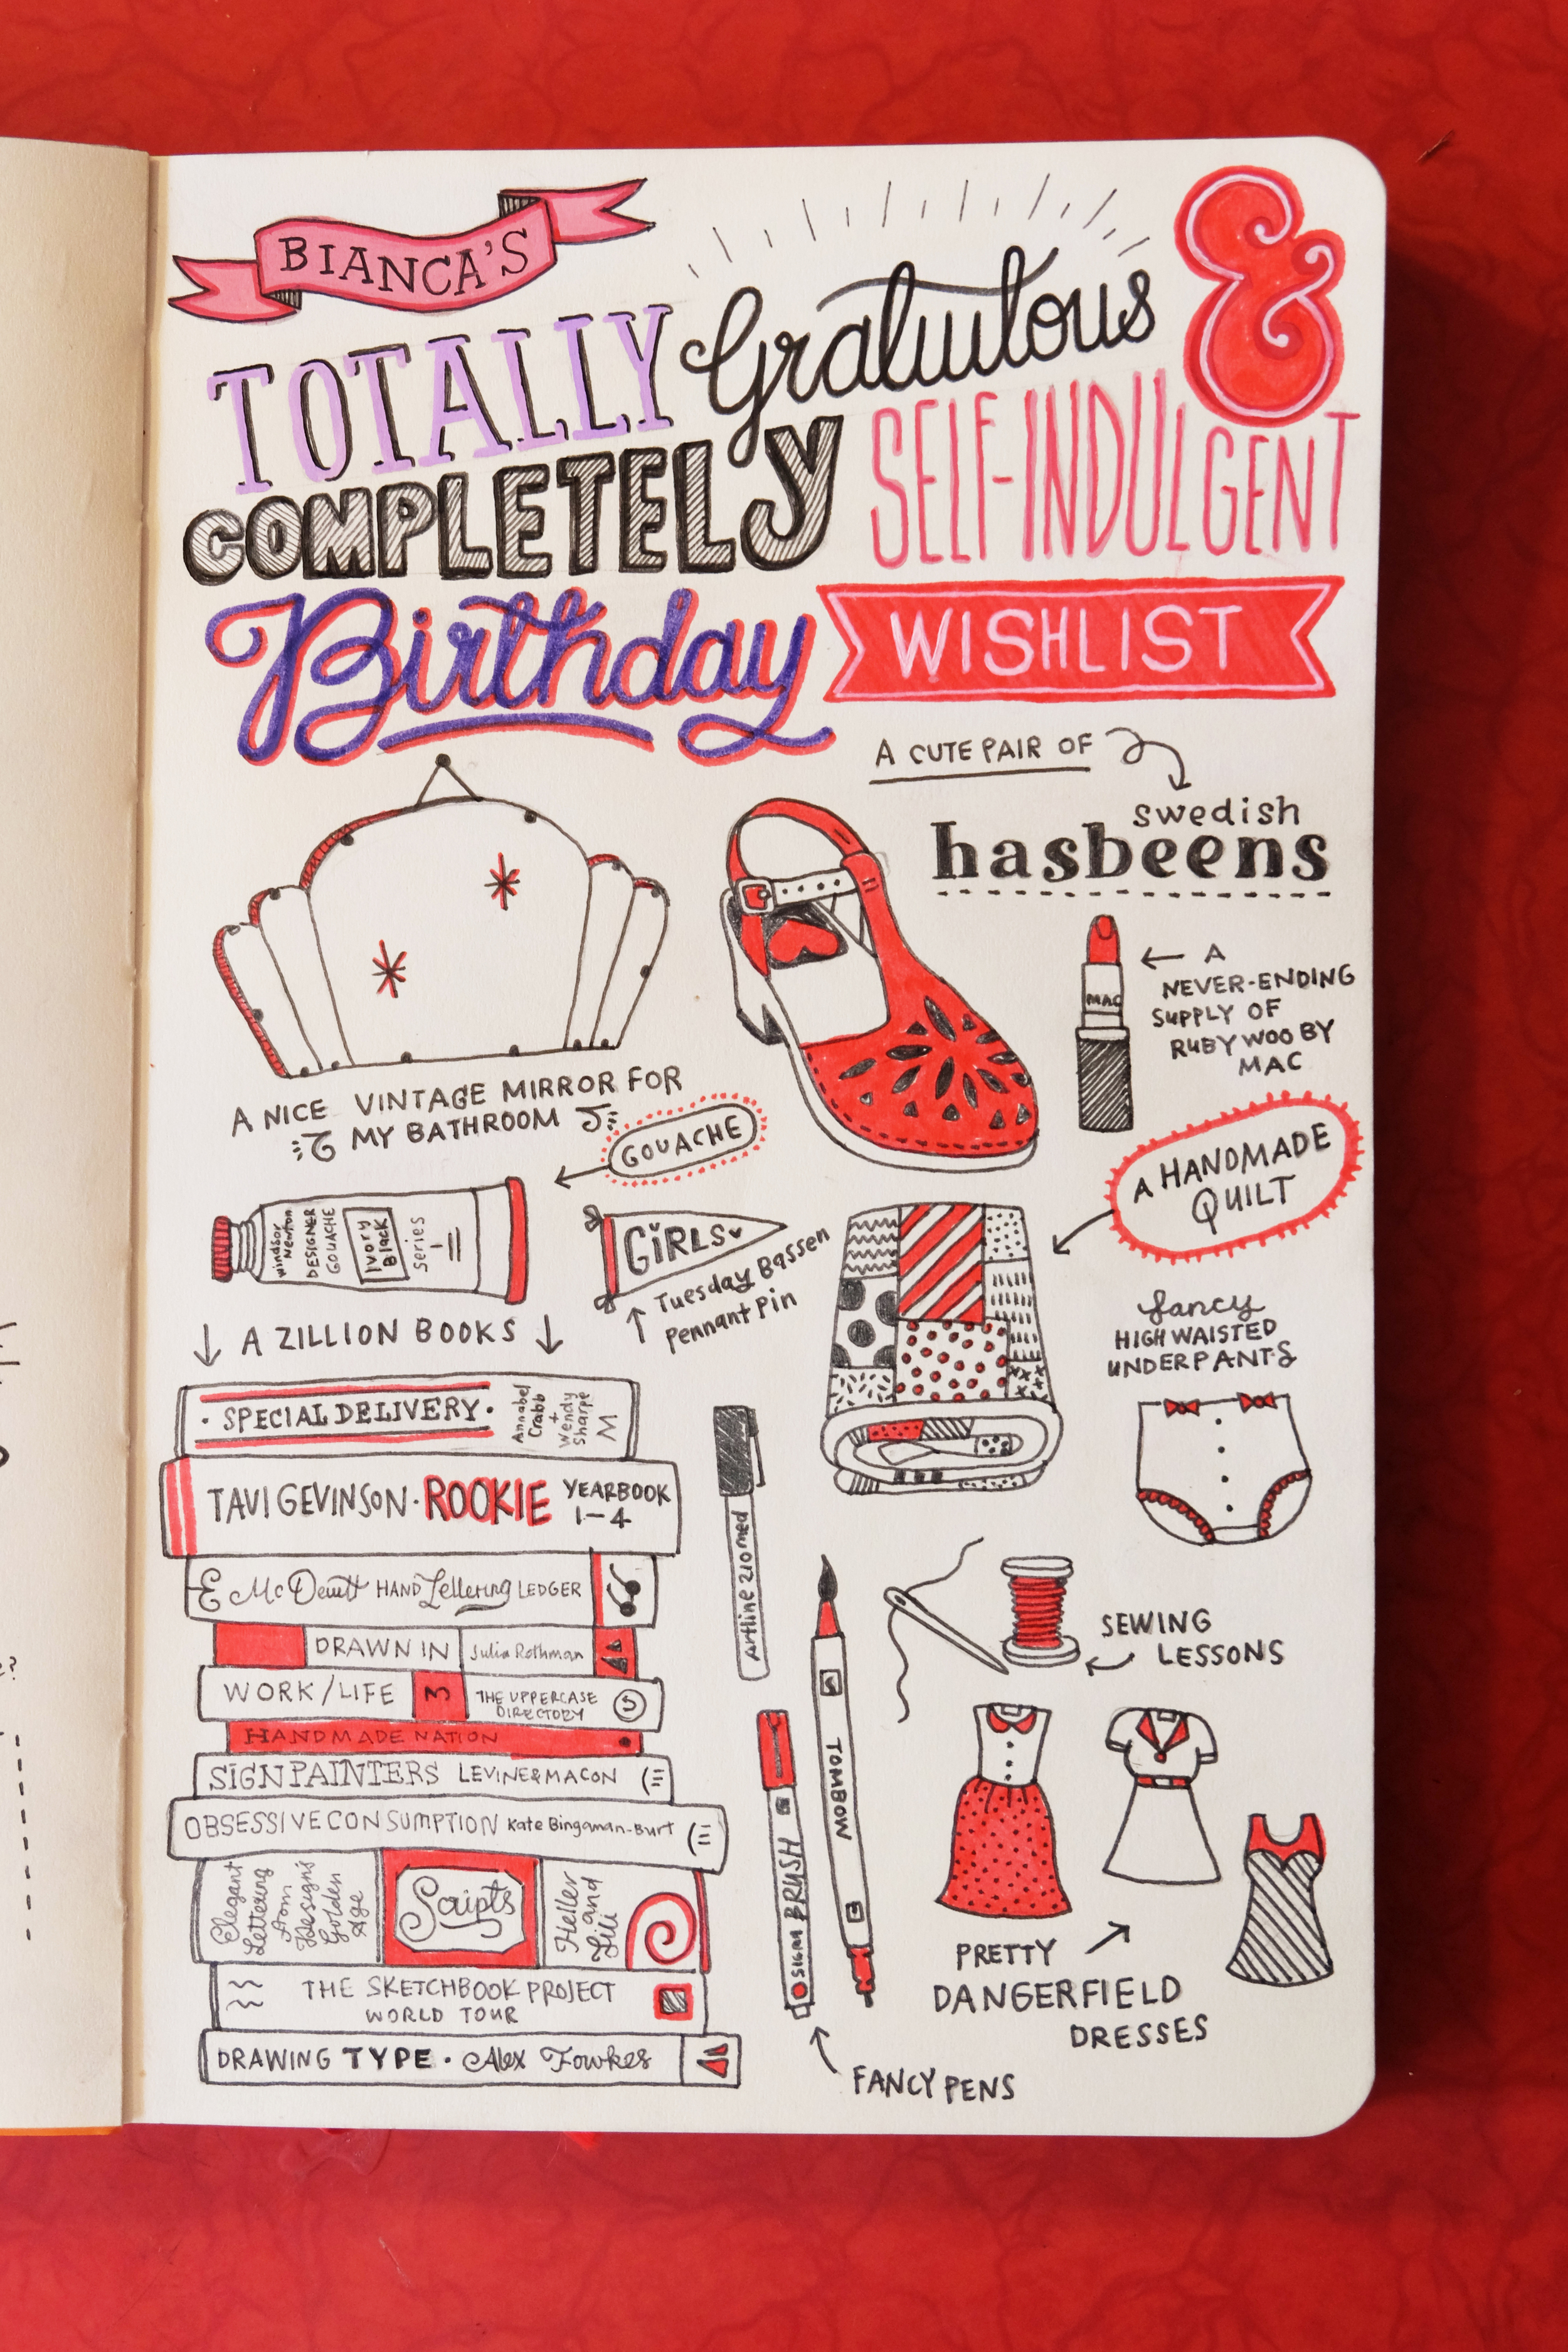 BIANCA'S
TOTALLY Gratuitous &
COMPLETELY SELF-INDULGENT
Birthday WISHLIST
A CUTE PAIR OF
swedish
hasbeens
MAC
A
NEVER-ENDING
SUPPLY OF
RUBY WOO BY
MAC
A NICE VINTAGE MIRROR FOR
MY BATHROOM
GOUACHE
windsor
Newton
DESIGNER
GOUACHE
Ivory
Black
series
1
GIRLS
Tuesday Bassen
Pennant Pin
A HANDMADE
QUILT
fancy
HIGH WAISTED
UNDERPANTS
A ZILLION BOOKS
· SPECIAL DELIVERY ·
Annabel
Crabb
+
Wendy
Sharpe
M
TAVI GEVINSON · ROOKIE YEARBOOK
1-4
McDevitt HAND Lettering LEDGER
DRAWN IN Julia Rothman
WORK/LIFE 3 THE UPPERCASE
DIRECTORY
HANDMADE NATION
SIGN PAINTERS LEVINE & MACON
OBSESSIVE CONSUMPTION Kate Bingaman-Burt
Elegant
Lettering
from
Design's
Golden
Age
Scripts
Heller
and
Fili
THE SKETCHBOOK PROJECT
WORLD TOUR
DRAWING TYPE · Alex Fowkes
Artline 210 med
TOMBOW
SIGMA BRUSH
FANCY PENS
SEWING
LESSONS
PRETTY
DANGERFIELD
DRESSES